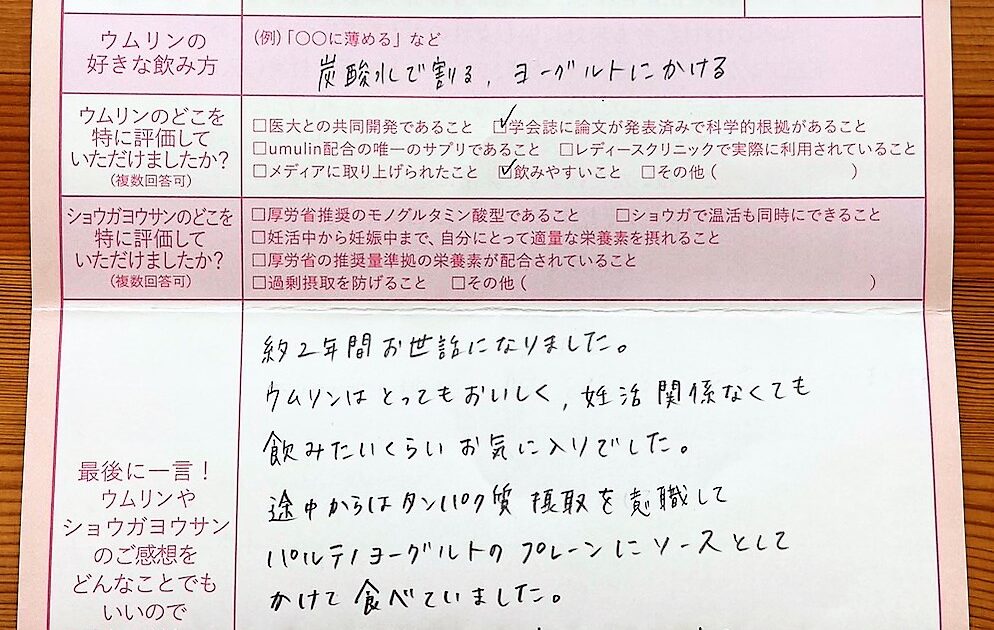 ウムリンの
好きな飲み方
(例)「〇〇に薄める」など
炭酸水で割る, ヨーグルトにかける
ウムリンのどこを
特に評価して
いただけましたか?
(複数回答可)
□医大との共同開発であること ☑学会誌に論文が発表済みで科学的根拠があること
□umulin配合の唯一のサプリであること □レディースクリニックで実際に利用されていること
□メディアに取り上げられたこと ☑飲みやすいこと □その他( )
ショウガヨウサンのどこを
特に評価して
いただけましたか?
(複数回答可)
□厚労省推奨のモノグルタミン酸型であること □ショウガで温活も同時にできること
□妊活中から妊娠中まで、自分にとって適量な栄養素を摂れること
□厚労省の推奨量準拠の栄養素が配合されていること
□過剰摂取を防げること □その他( )
最後に一言!
ウムリンや
ショウガヨウサン
のご感想を
どんなことでも
いいので
約2年間お世話になりました。
ウムリンはとってもおいしく, 妊活関係なくても
飲みたいくらいお気に入りでした。
途中からはタンパク質摂取を意識して
パルテノヨーグルトのプレーンにソースとして
かけて食べていました。